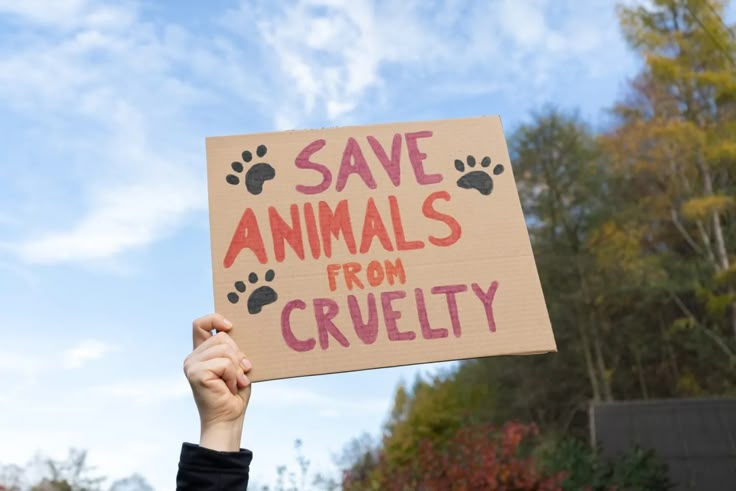 SAVE
ANIMALS
FROM
CRUELTY